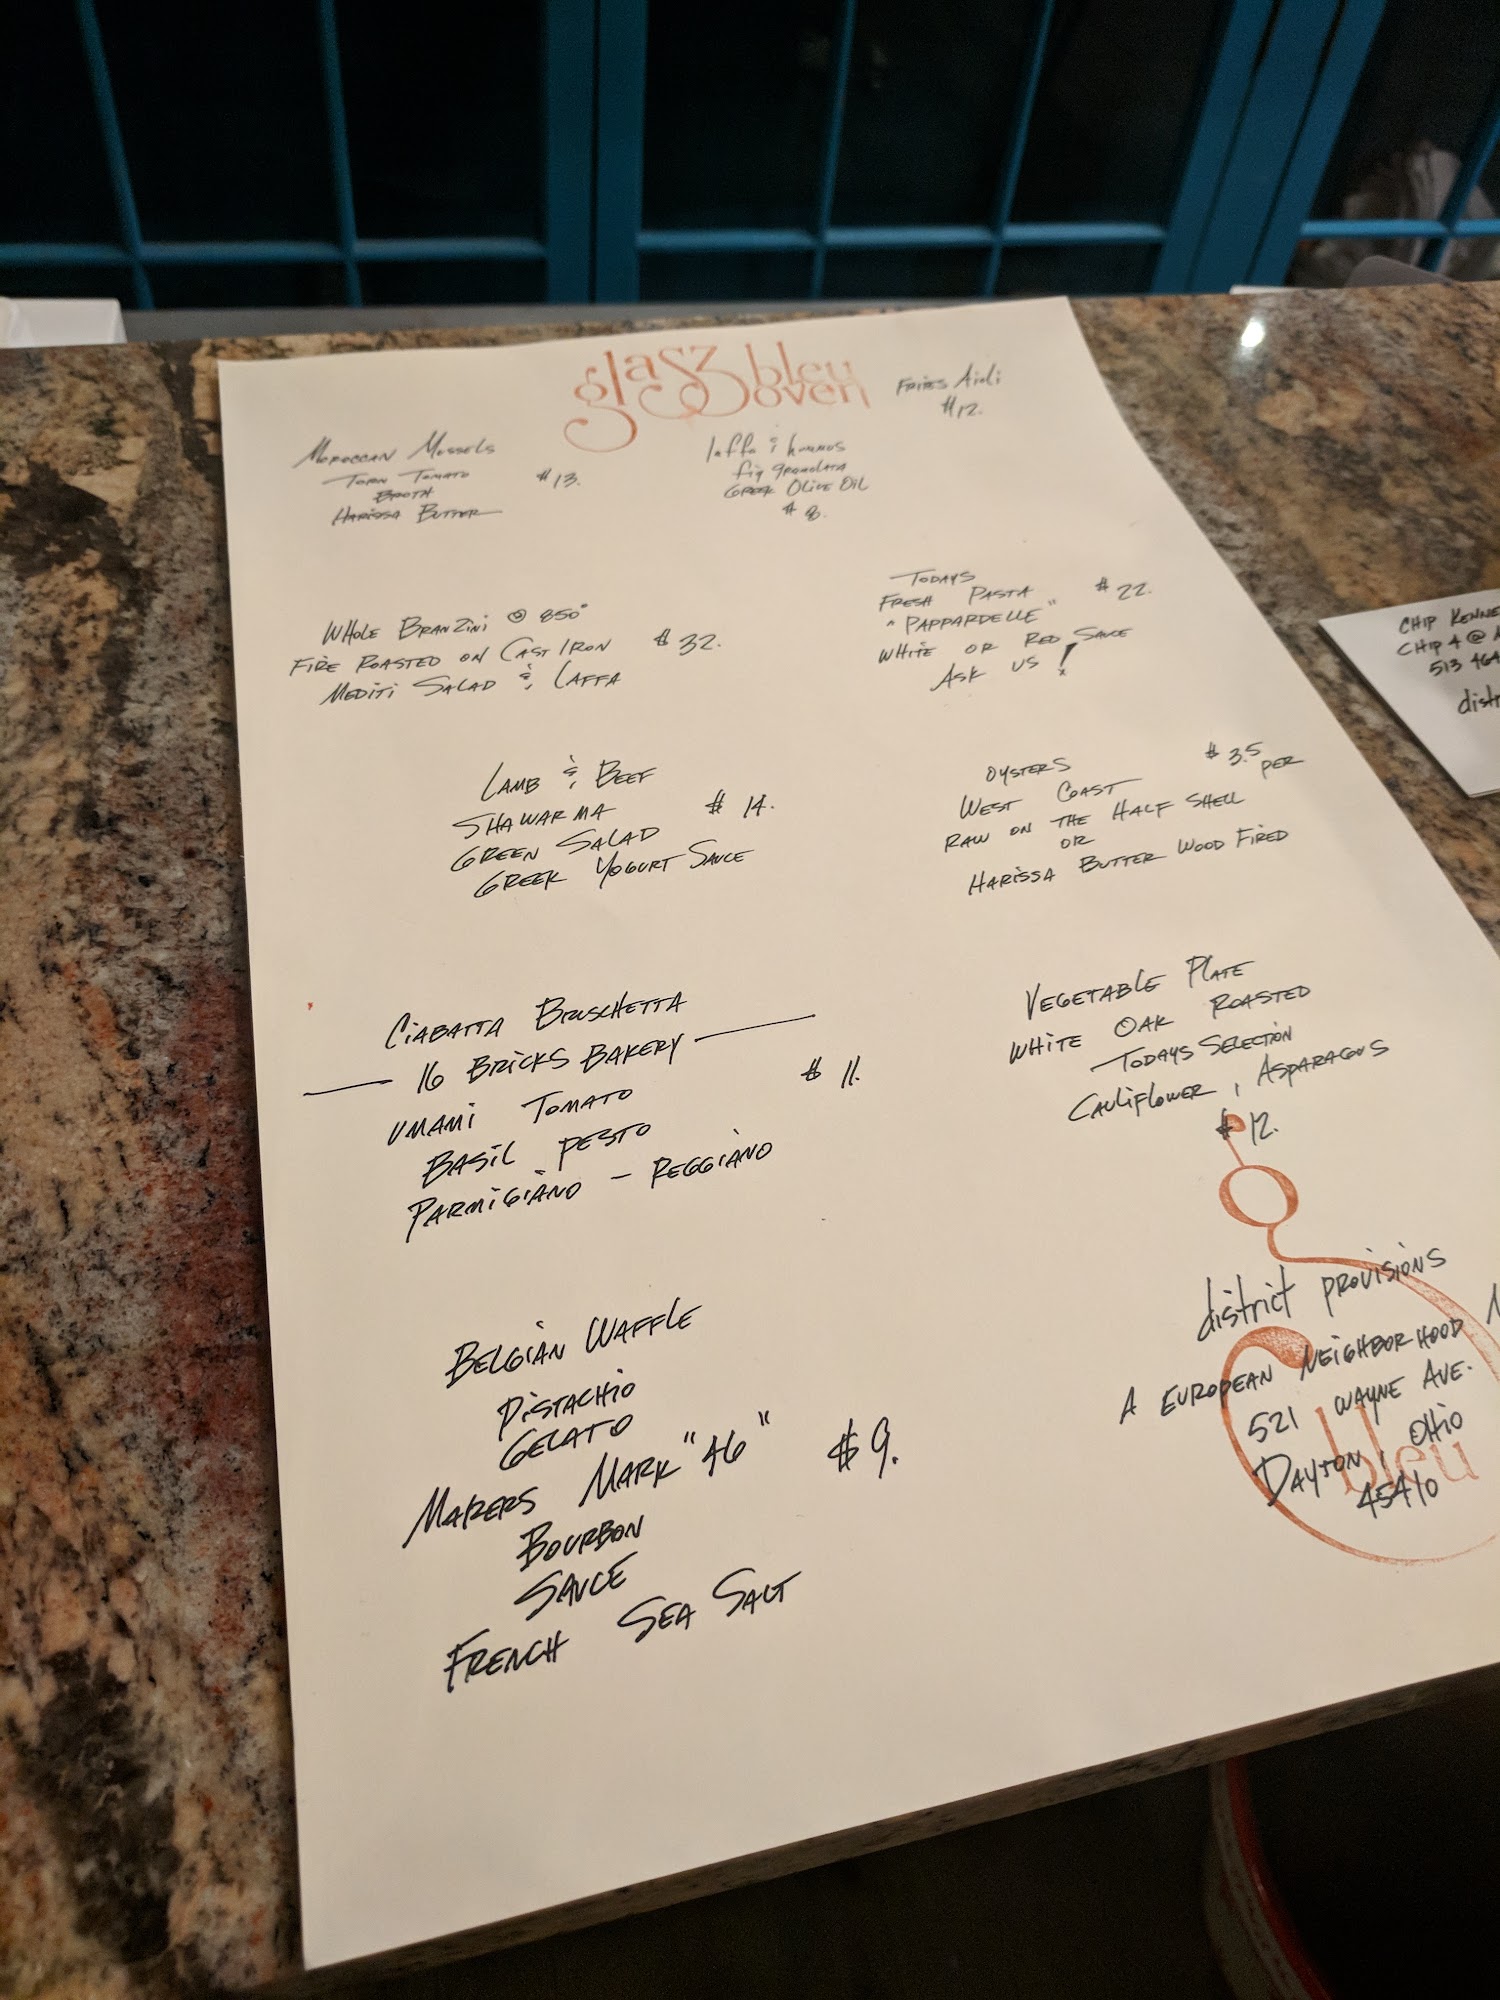 glasz bleu
oven
Fries Aioli
$12.
Moroccan Mussels
Torn Tomato
Broth
Harissa Butter
$13.
laffa & hummus
fig gremolata
Greek Olive Oil
$8.
Whole Branzini @ 850°
Fire Roasted on Cast Iron
Mediti Salad & Laffa
$32.
Todays
Fresh Pasta
"Pappardelle"
White or Red Sauce
Ask us!
$22.
Lamb & Beef
Shawarma
Green Salad
Greek Yogurt Sauce
$14.
Oysters
West Coast
Raw on the Half Shell
or
Harissa Butter Wood Fired
$3.5
per
Ciabatta Bruschetta
16 Bricks Bakery
Umami Tomato
Basil Pesto
Parmigiano - Reggiano
$11.
Vegetable Plate
White Oak Roasted
Todays Selection
Cauliflower, Asparagus
$12.
Belgian Waffle
Pistachio
Gelato
Makers Mark "46"
Bourbon
Sauce
French Sea Salt
$9.
district provisions
A European Neighborhood
521 Wayne Ave.
Dayton, Ohio
45410
bleu
Chip Kenne
Chip 4 @
513 464
distr